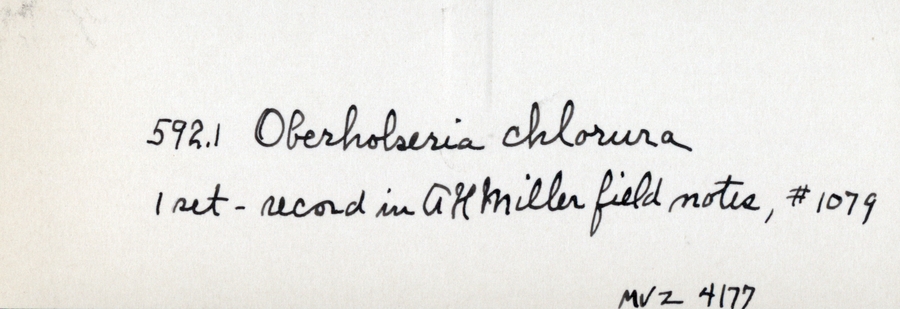 592.1 Oberholseria chlorura
1 set - record in AHMiller field notes, #1079
MVZ 4177